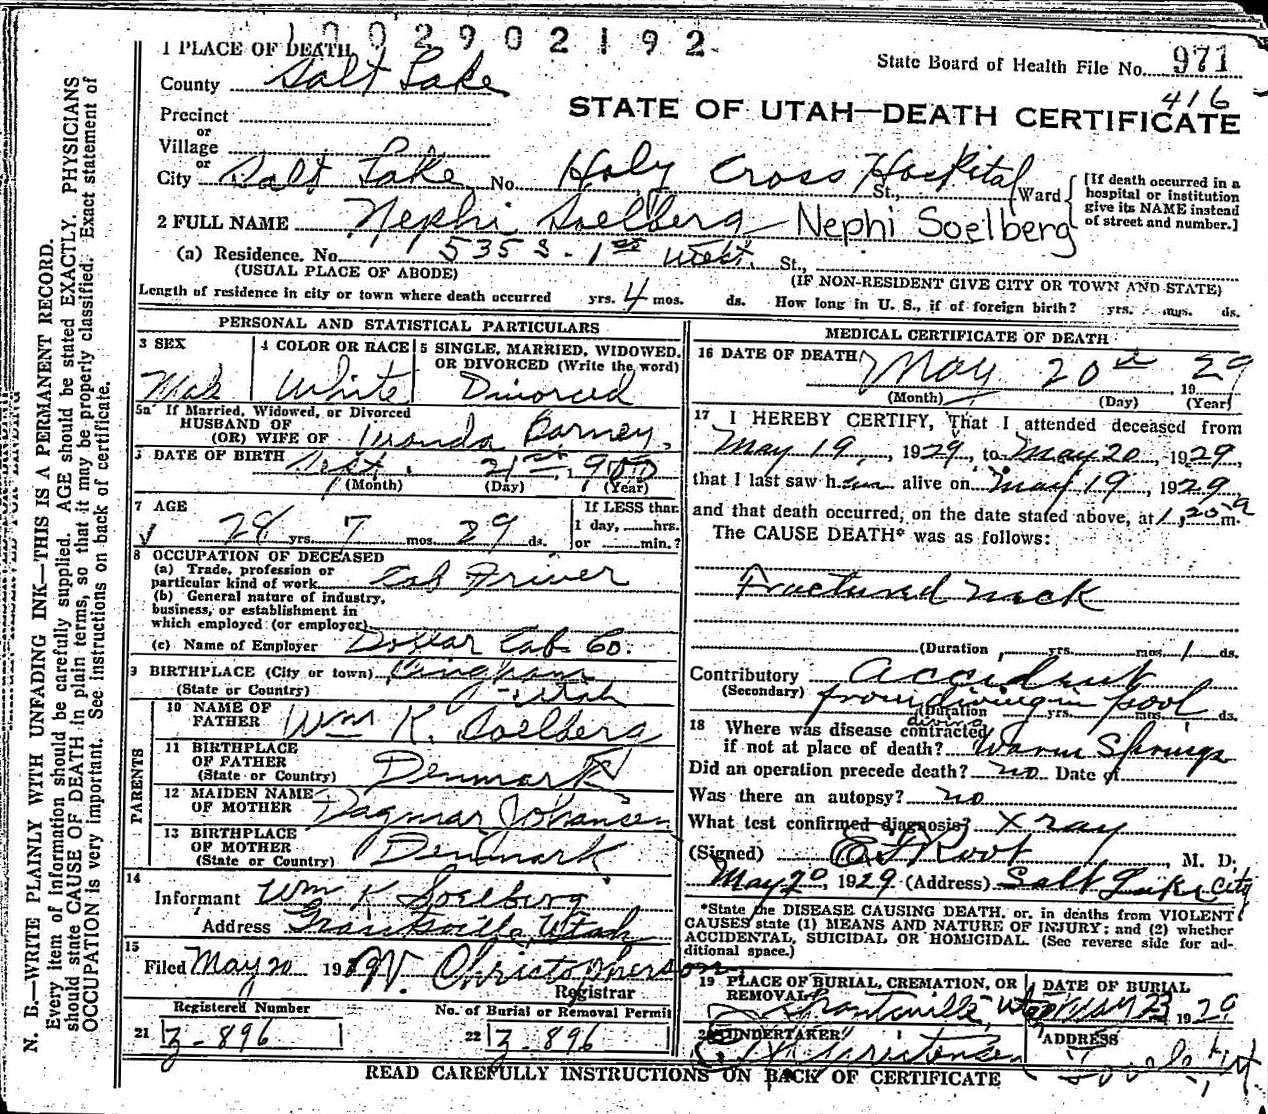 1002902192
1 PLACE OF DEATH
State Board of Health File No. 971
416
County Salt Lake
STATE OF UTAH—DEATH CERTIFICATE
Precinct
or
Village
or
City Salt Lake No. Holy Cross Hospital St., Ward
[If death occurred in a hospital or institution give its NAME instead of street and number.]
2 FULL NAME Nephi Soelberg Nephi Soelberg
(a) Residence. No. 535 S. 1st West. St.,
(USUAL PLACE OF ABODE) (IF NON-RESIDENT GIVE CITY OR TOWN AND STATE)
Length of residence in city or town where death occurred yrs. 4 mos. ds. How long in U. S., if of foreign birth? yrs. mos. ds.
PERSONAL AND STATISTICAL PARTICULARS
3 SEX Male
4 COLOR OR RACE White
5 SINGLE, MARRIED, WIDOWED, OR DIVORCED (Write the word) Divorced
5a If Married, Widowed, or Divorced
HUSBAND OF
(OR) WIFE OF Barney
DATE OF BIRTH Sept. 21st, 1900
(Month) (Day) (Year)
7 AGE 28 yrs. 7 mos. 29 ds.
If LESS than 1 day, hrs. or min.?
8 OCCUPATION OF DECEASED
(a) Trade, profession or
particular kind of work Cab Driver
(b) General nature of industry,
business, or establishment in
which employed (or employer)
(c) Name of Employer Dollar Cab Co.
9 BIRTHPLACE (City or town) Bingham
(State or Country) Utah
PARENTS
10 NAME OF
FATHER Wm K. Soelberg
11 BIRTHPLACE
OF FATHER
(State or Country) Denmark
12 MAIDEN NAME
OF MOTHER Dagmar Johansen
13 BIRTHPLACE
OF MOTHER
(State or Country) Denmark
14
Informant Wm K Soelberg
Address Grantsville, Utah
15
Filed May 20 1929 W. Christopherson
Registrar
Registered Number No. of Burial or Removal Permit
21 Z-896 22 Z-896
MEDICAL CERTIFICATE OF DEATH
16 DATE OF DEATH May 20th 1929
(Month) (Day) (Year)
17 I HEREBY CERTIFY, That I attended deceased from
May 19, 1929, to May 20, 1929,
that I last saw him alive on May 19, 1929
and that death occurred, on the date stated above, at 1.20 a m.
The CAUSE DEATH* was as follows:
Fractured neck
(Duration yrs. mos. 1 ds.
Contributory accident
(Secondary) from diving in pool
(Duration yrs. mos. ds.
diving
18 Where was disease contracted
if not at place of death? Warm Springs
Did an operation precede death? no Date of
Was there an autopsy? no
What test confirmed diagnosis? X ray
(Signed) Root, M. D.
May 20, 1929 (Address) Salt Lake City
*State the DISEASE CAUSING DEATH, or, in deaths from VIOLENT
CAUSES state (1) MEANS AND NATURE OF INJURY; and (2) whether
ACCIDENTAL, SUICIDAL OR HOMICIDAL. (See reverse side for ad-
ditional space.)
19 PLACE OF BURIAL, CREMATION, OR
REMOVAL Grantsville, Utah
DATE OF BURIAL
May 23 1929
20 UNDERTAKER
ADDRESS
READ CAREFULLY INSTRUCTIONS ON BACK OF CERTIFICATE
N. B.—WRITE PLAINLY WITH UNFADING INK—THIS IS A PERMANENT RECORD.
Every item of information should be carefully supplied. AGE should be stated EXACTLY. PHYSICIANS
should state CAUSE OF DEATH in plain terms, so that it may be properly classified. Exact statement of
OCCUPATION is very important. See instructions on back of certificate.